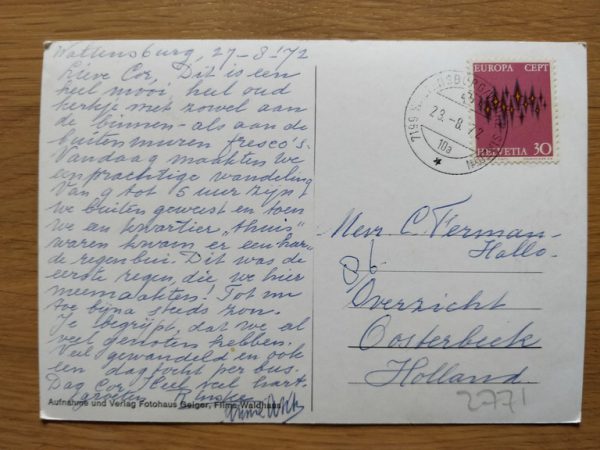 Waltensburg, 27-8-'72
Lieve Cor, Dit is een
heel mooi, heel oud
kerkje met zowel aan
de binnen- als aan de
buitenmuren fresco's.
Vandaag maakten we
een prachtige wandeling
Van 9 tot 5 uur zijn
we buiten geweest en toen
we een kwartier "thuis"
waren kwam er een har-
de regenbui. Dit was de
eerste regen, die we hier
meemaakten! Tot nu
toe bijna steeds zon.
Je begrijpt, dat we al
veel genoten hebben.
Veel gewandeld en ook
een dagtocht per bus.
Dag Cor, Heel veel hart.
groeten
Aufnahme und Verlag Fotohaus Geiger, Flims-Waldhaus
EUROPA CEPT
HELVETIA 30
7199
10a
Mevr. C. Terman-
Hallo-
Overzicht
Oosterbeek
Holland
2771